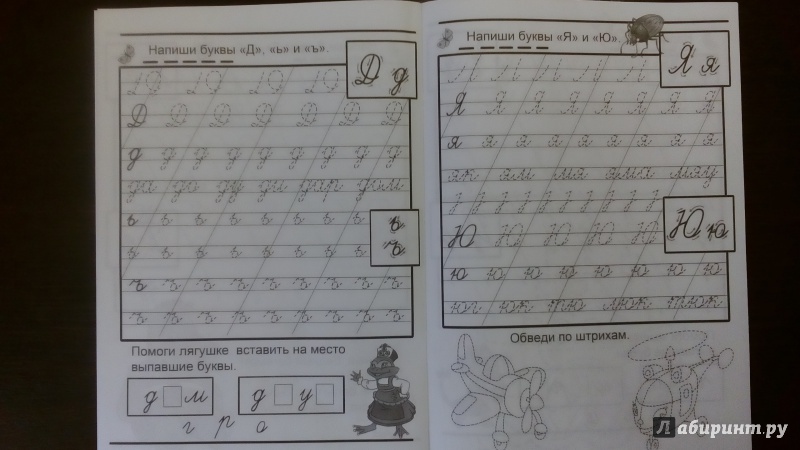 Напиши буквы «Д», «ь» и «ъ».
Д д
Д Д Д Д Д Д Д
д д д д д д д д д
да до ду ди дар дом
ь ь ь ь ь ь ь ь
ь
ъ
ь ь ь ь ь ь ь ь ь
ъ ъ ъ ъ ъ ъ ъ ъ ъ
ъ ъ ъ ъ ъ ъ ъ ъ ъ
Помоги лягушке вставить на место
выпавшие буквы.
д м
д у
г р о
Напиши буквы «Я» и «Ю».
Я я
Я Я Я Я Я Я Я
я я я я я я я я
як ям мя яма мяу
Ю ю
Ю Ю Ю Ю Ю
ю ю ю ю ю ю ю ю
юг юк тю люк тюк
Обведи по штрихам.
Лабиринт.ру